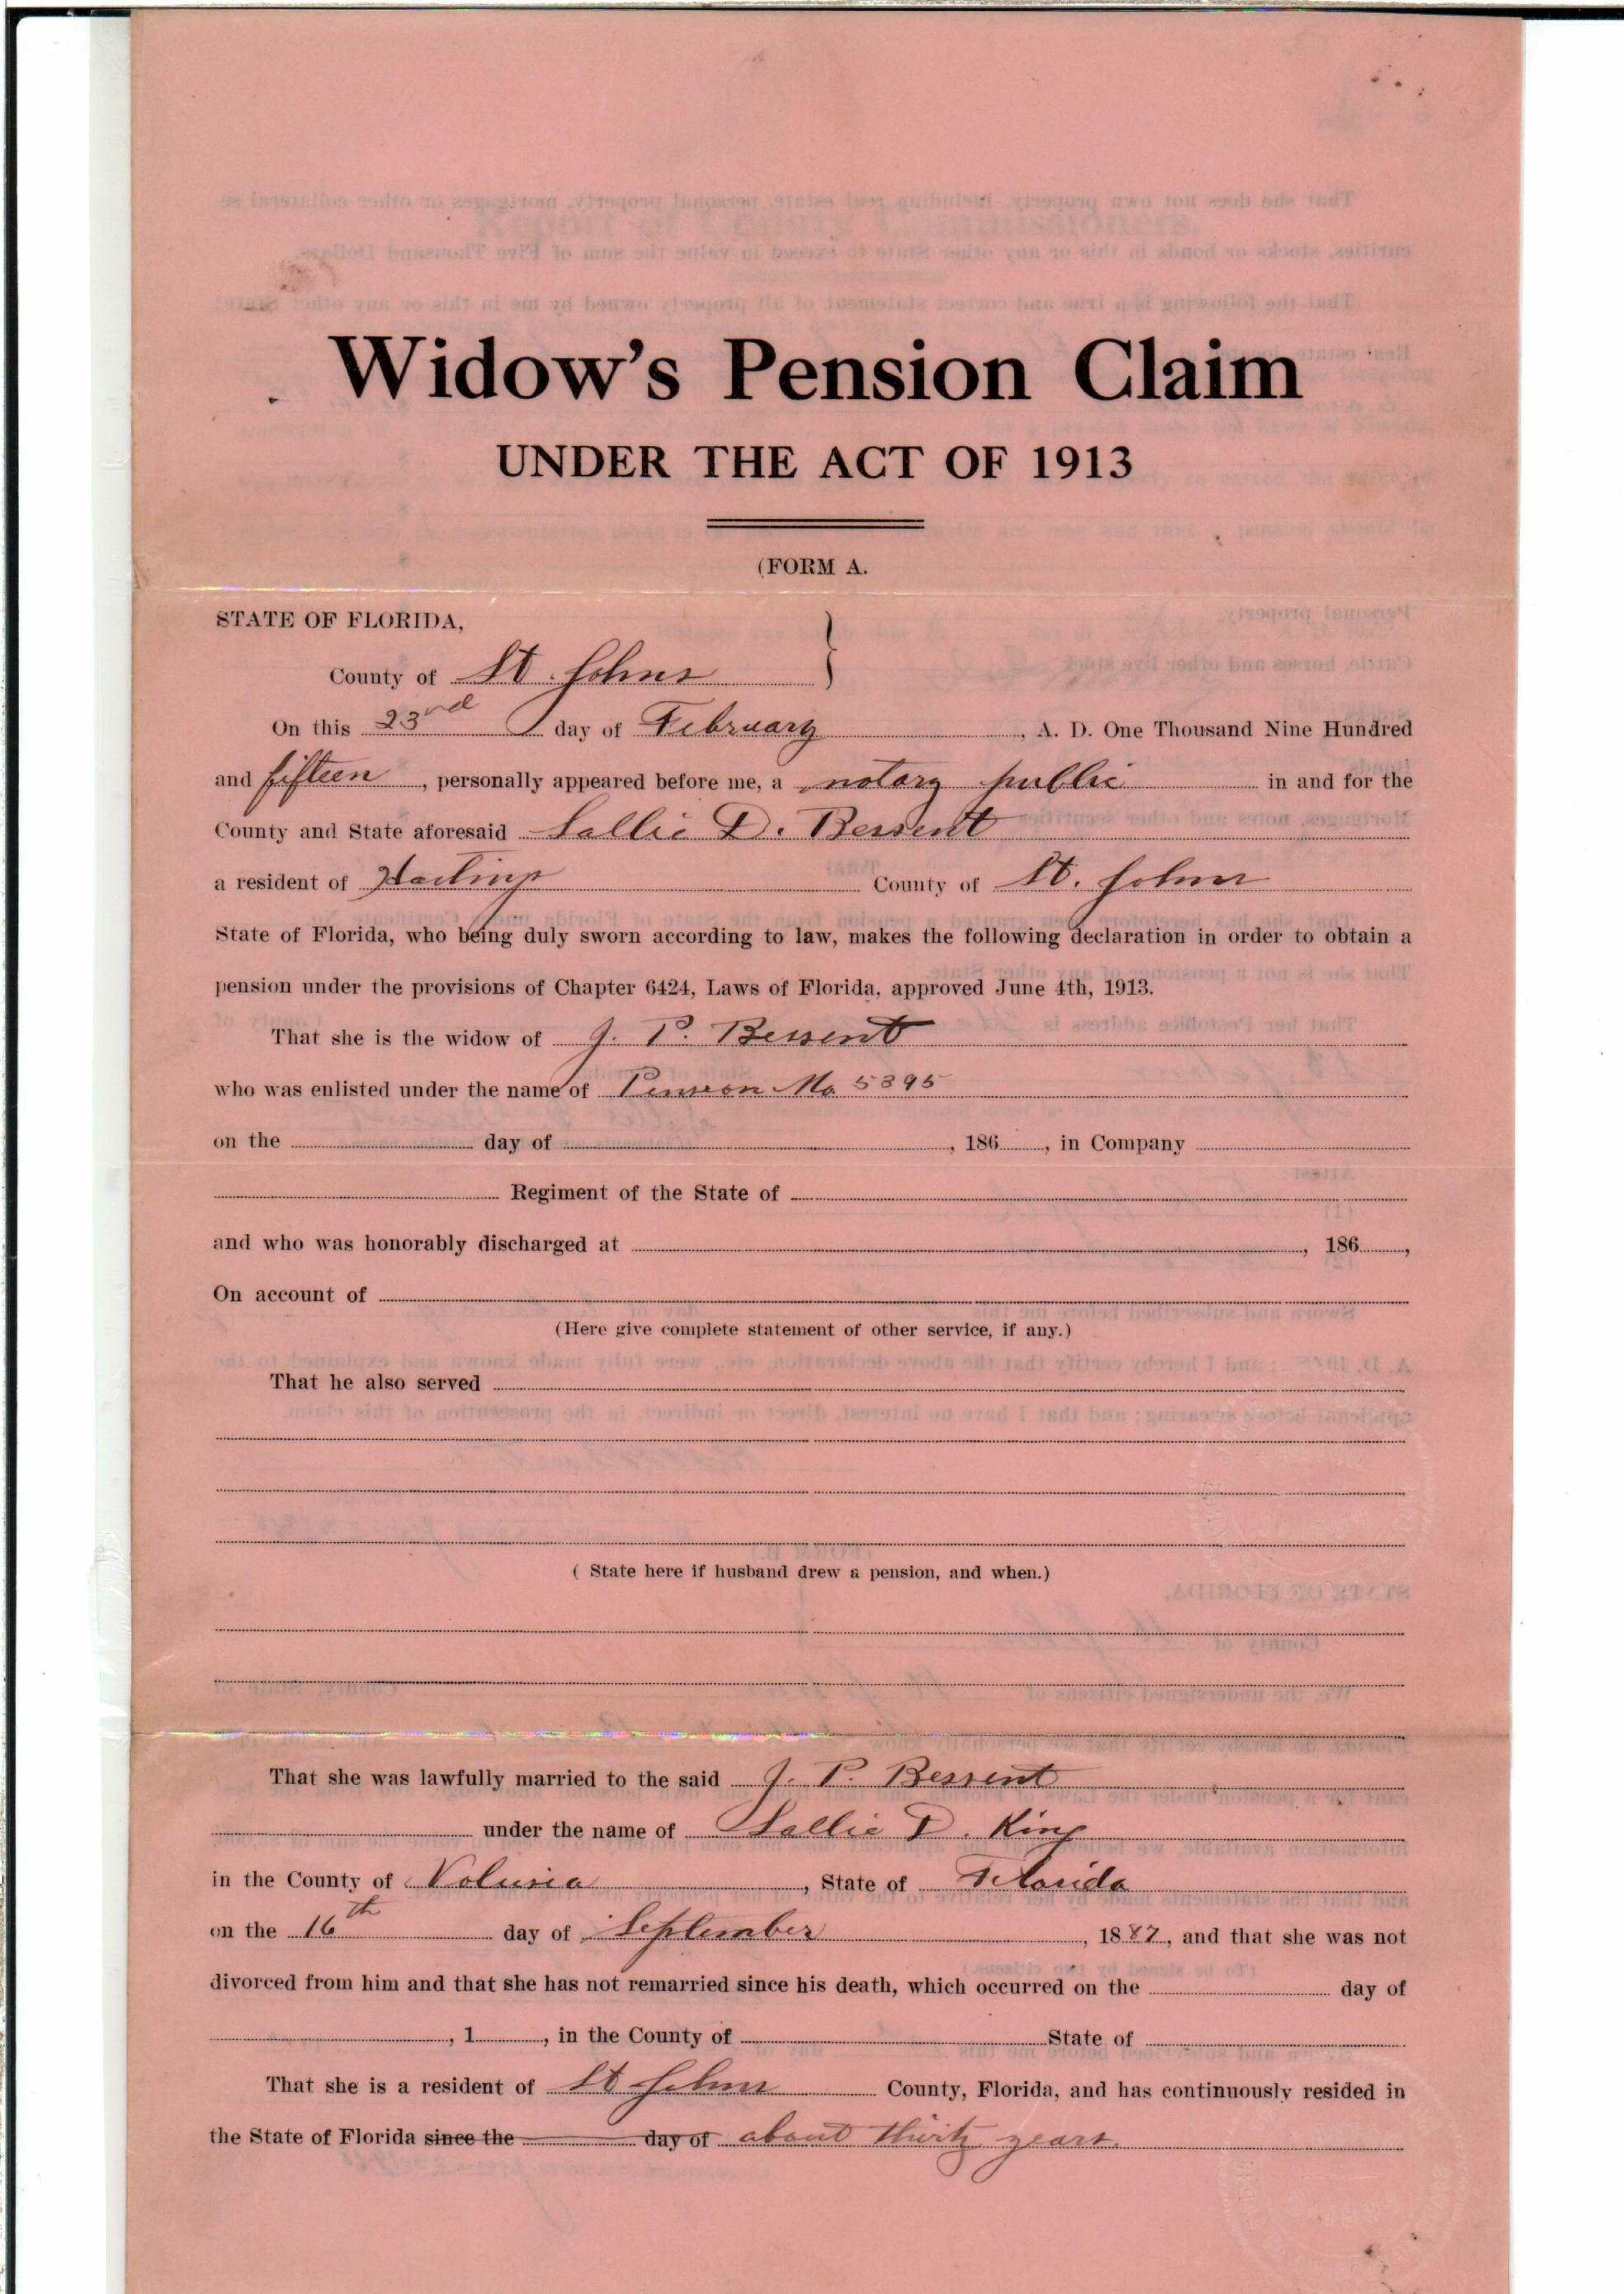 Widow's Pension Claim
UNDER THE ACT OF 1913
(FORM A.
STATE OF FLORIDA,
County of St. Johns
On this 23rd day of February, A. D. One Thousand Nine Hundred
and fifteen, personally appeared before me, a notary public in and for the
County and State aforesaid Sallie D. Bessent
a resident of Hastings County of St. Johns
State of Florida, who being duly sworn according to law, makes the following declaration in order to obtain a
pension under the provisions of Chapter 6424, Laws of Florida, approved June 4th, 1913.
That she is the widow of J. P. Bessent
who was enlisted under the name of Pension No 5395
on the day of , 186 , in Company
Regiment of the State of
and who was honorably discharged at , 186 ,
On account of
(Here give complete statement of other service, if any.)
That he also served
( State here if husband drew a pension, and when.)
That she was lawfully married to the said J. P. Bessent
under the name of Sallie D. King
in the County of Volusia, State of Florida
on the 16th day of September, 1887, and that she was not
divorced from him and that she has not remarried since his death, which occurred on the day of
, 1 , in the County of State of
That she is a resident of St Johns County, Florida, and has continuously resided in
the State of Florida since the day of about thirty years.